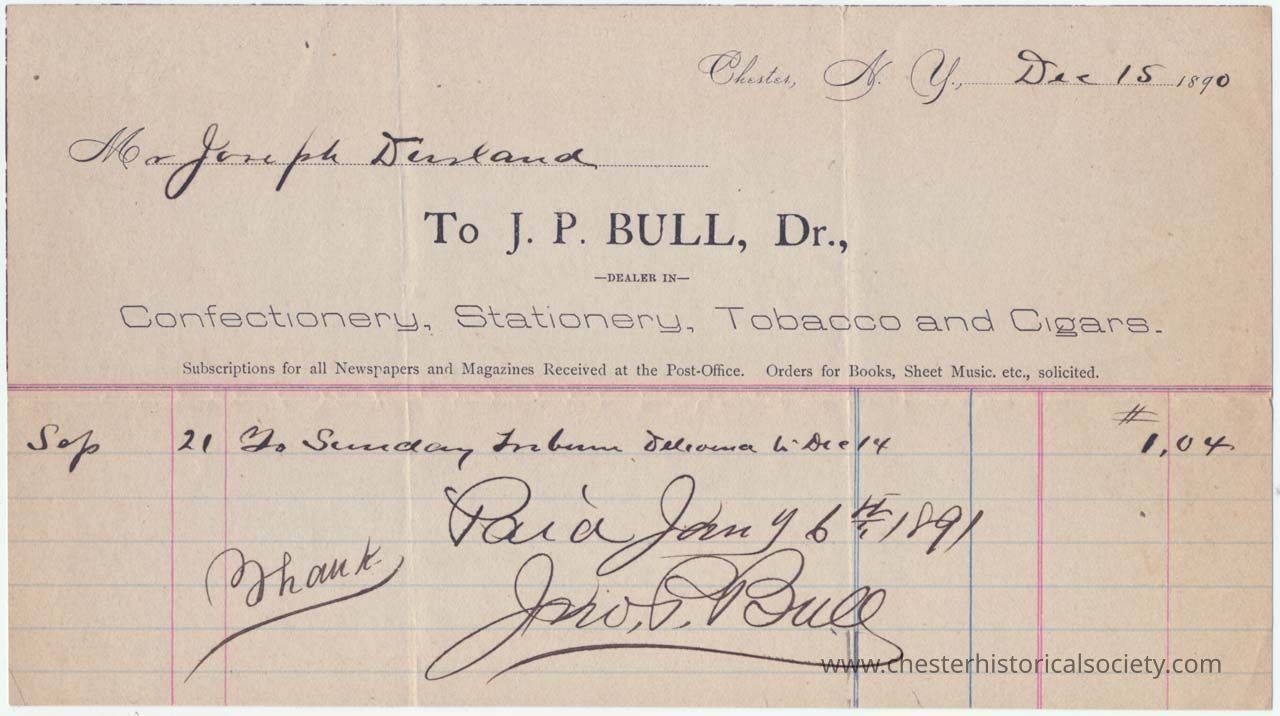 Chester, N. Y., Dec 15 1890
Mr Joseph Durland
To J. P. BULL, Dr.,
—DEALER IN—
Confectionery, Stationery, Tobacco and Cigars.
Subscriptions for all Newspapers and Magazines Received at the Post-Office. Orders for Books, Sheet Music. etc., solicited.
$
Sep 21 To Sunday Tribune to Dec 14 1.04
Paid Jany 6th, 1891
Thank
Jno. P. Bull
www.chesterhistoricalsociety.com